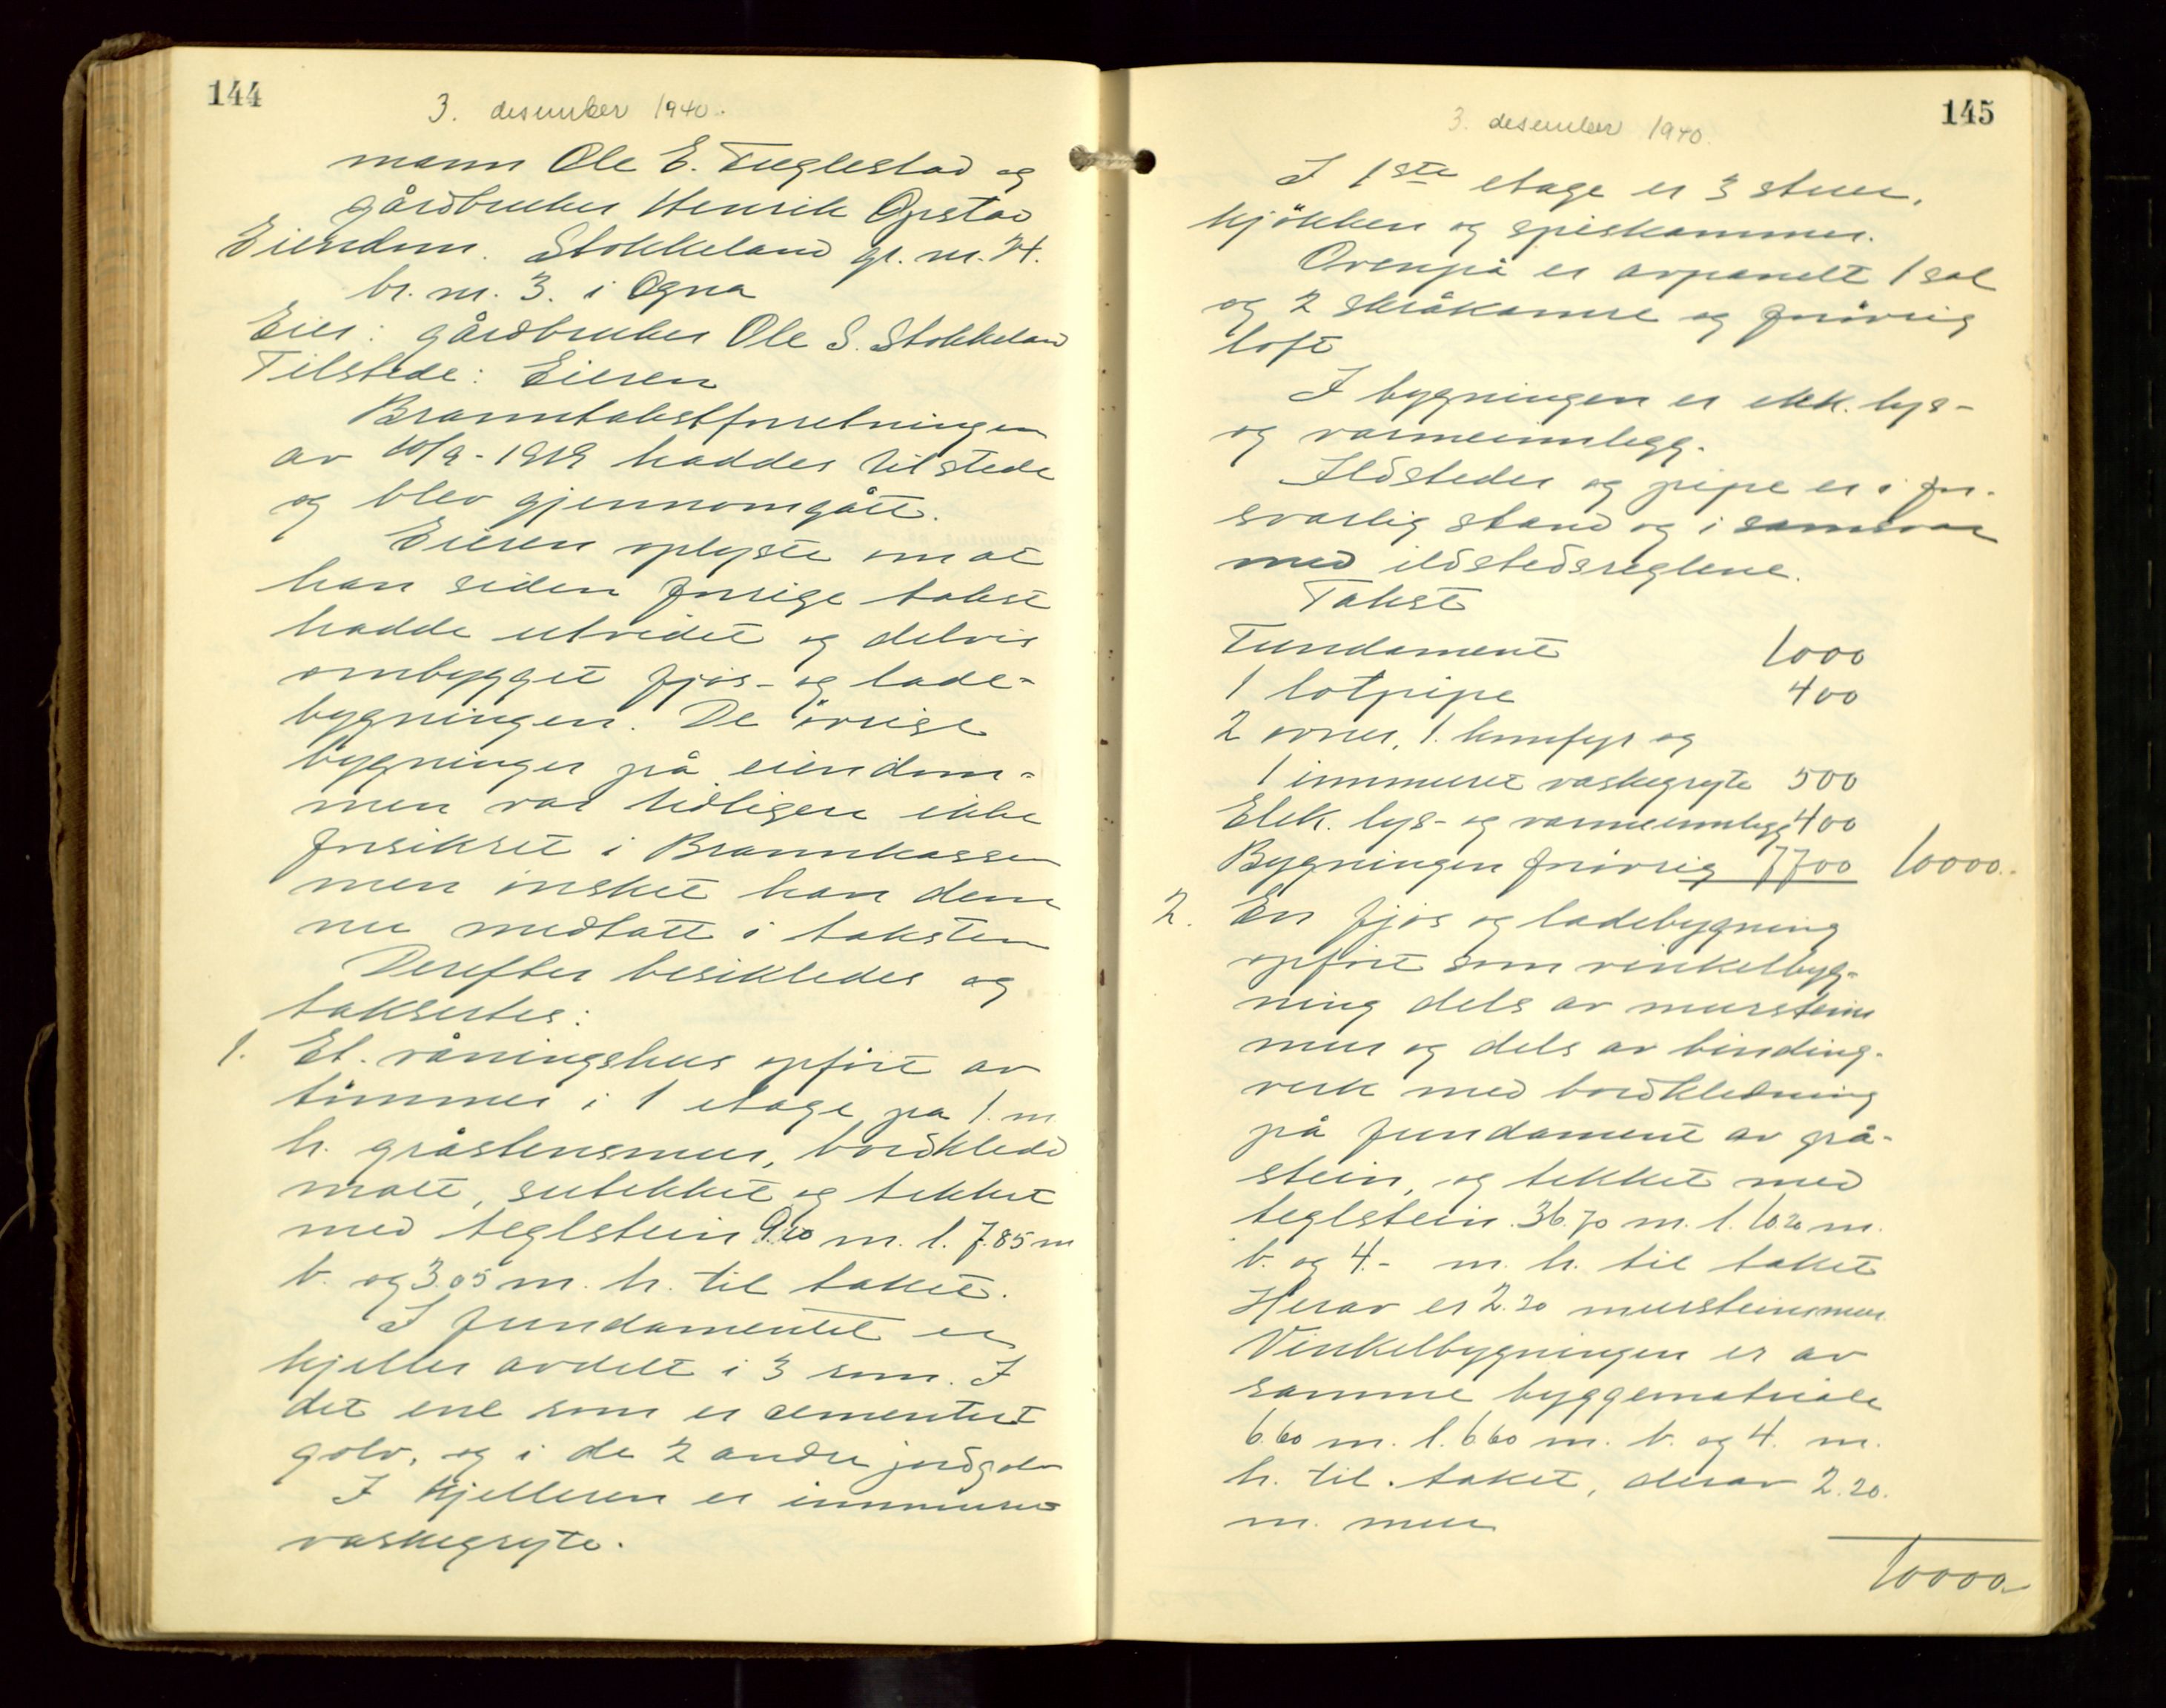 144
3. desember 1940.
mann Ole E. Fuglestad og
gårdbruker Henrik Opstad
Eiendom. Stokkeland gr. nr. 24.
br. nr. 3. i Ogna
Eier: gårdbruker Ole S. Stokkeland
Tilstede: Eieren
Branntakstforretningen
av 10/9-1919 haddes tilstede
og blev gjennomgått.
Eieren oplyste om at
han siden forrige takst
hadde utvidet og delvis
ombygget fjøs- og lade-
bygningen. De øvrige
bygninger på eiendom-
men var tidligere ikke
forsikret i Brannkassen
men ønsket han dem
nu medtatt i taksten
Derefter besiktedes og
taksertes:
1. Et. våningshus opført av
tømmer i 1 etage på 1. m
h. gråstensmur, bordkledd
malt, sutekket og tekket
med teglstein 9.10 m. l. 7.85 m
b. og 3.05 m. h. til taket.
I fundamentet er
kjeller avdelt i 3 rom. I
det ene rom er cementert
golv, og i de 2 andre jordgolv
I kjelleren er innmuret
vaskegryte.
145
3. desember 1940.
I 1ste etage er 3 stuer,
kjøkken og spiskammer.
Ovenpå er avpanelt 1 sal
og 2 skråkamre og forøvrig
loft
I bygningen er elek. lys-
og varmeinnlegg.
Ildsteder og pipe er i for-
svarlig stand og i samsvar
med ildstedsreglene.
Takst
Fundament 1000
1 lotpipe 400
2 ovner, 1. komfyr og
1 innmuret vaskegryte 500
Elek. lys- og varmeinnlegg 400
Bygningen forøvrig 7700 10000.-
2. En fjøs og ladebygning
opført som vinkelbyg-
ning dels av murstens
mur og dels av binding-
verk med bordkledning
på fundament av grå-
stein, og tekket med
teglstein. 36.70 m. l. 10.20 m.
b. og 4.- m. h. til taket
Herav er 2.20 mursteinsmur.
Vinkelbygningen er av
samme byggemateriale
6.60 m. l. 6.60 m. b. og 4. m.
h. til taket, derav 2.20.
m. mur
10000.-